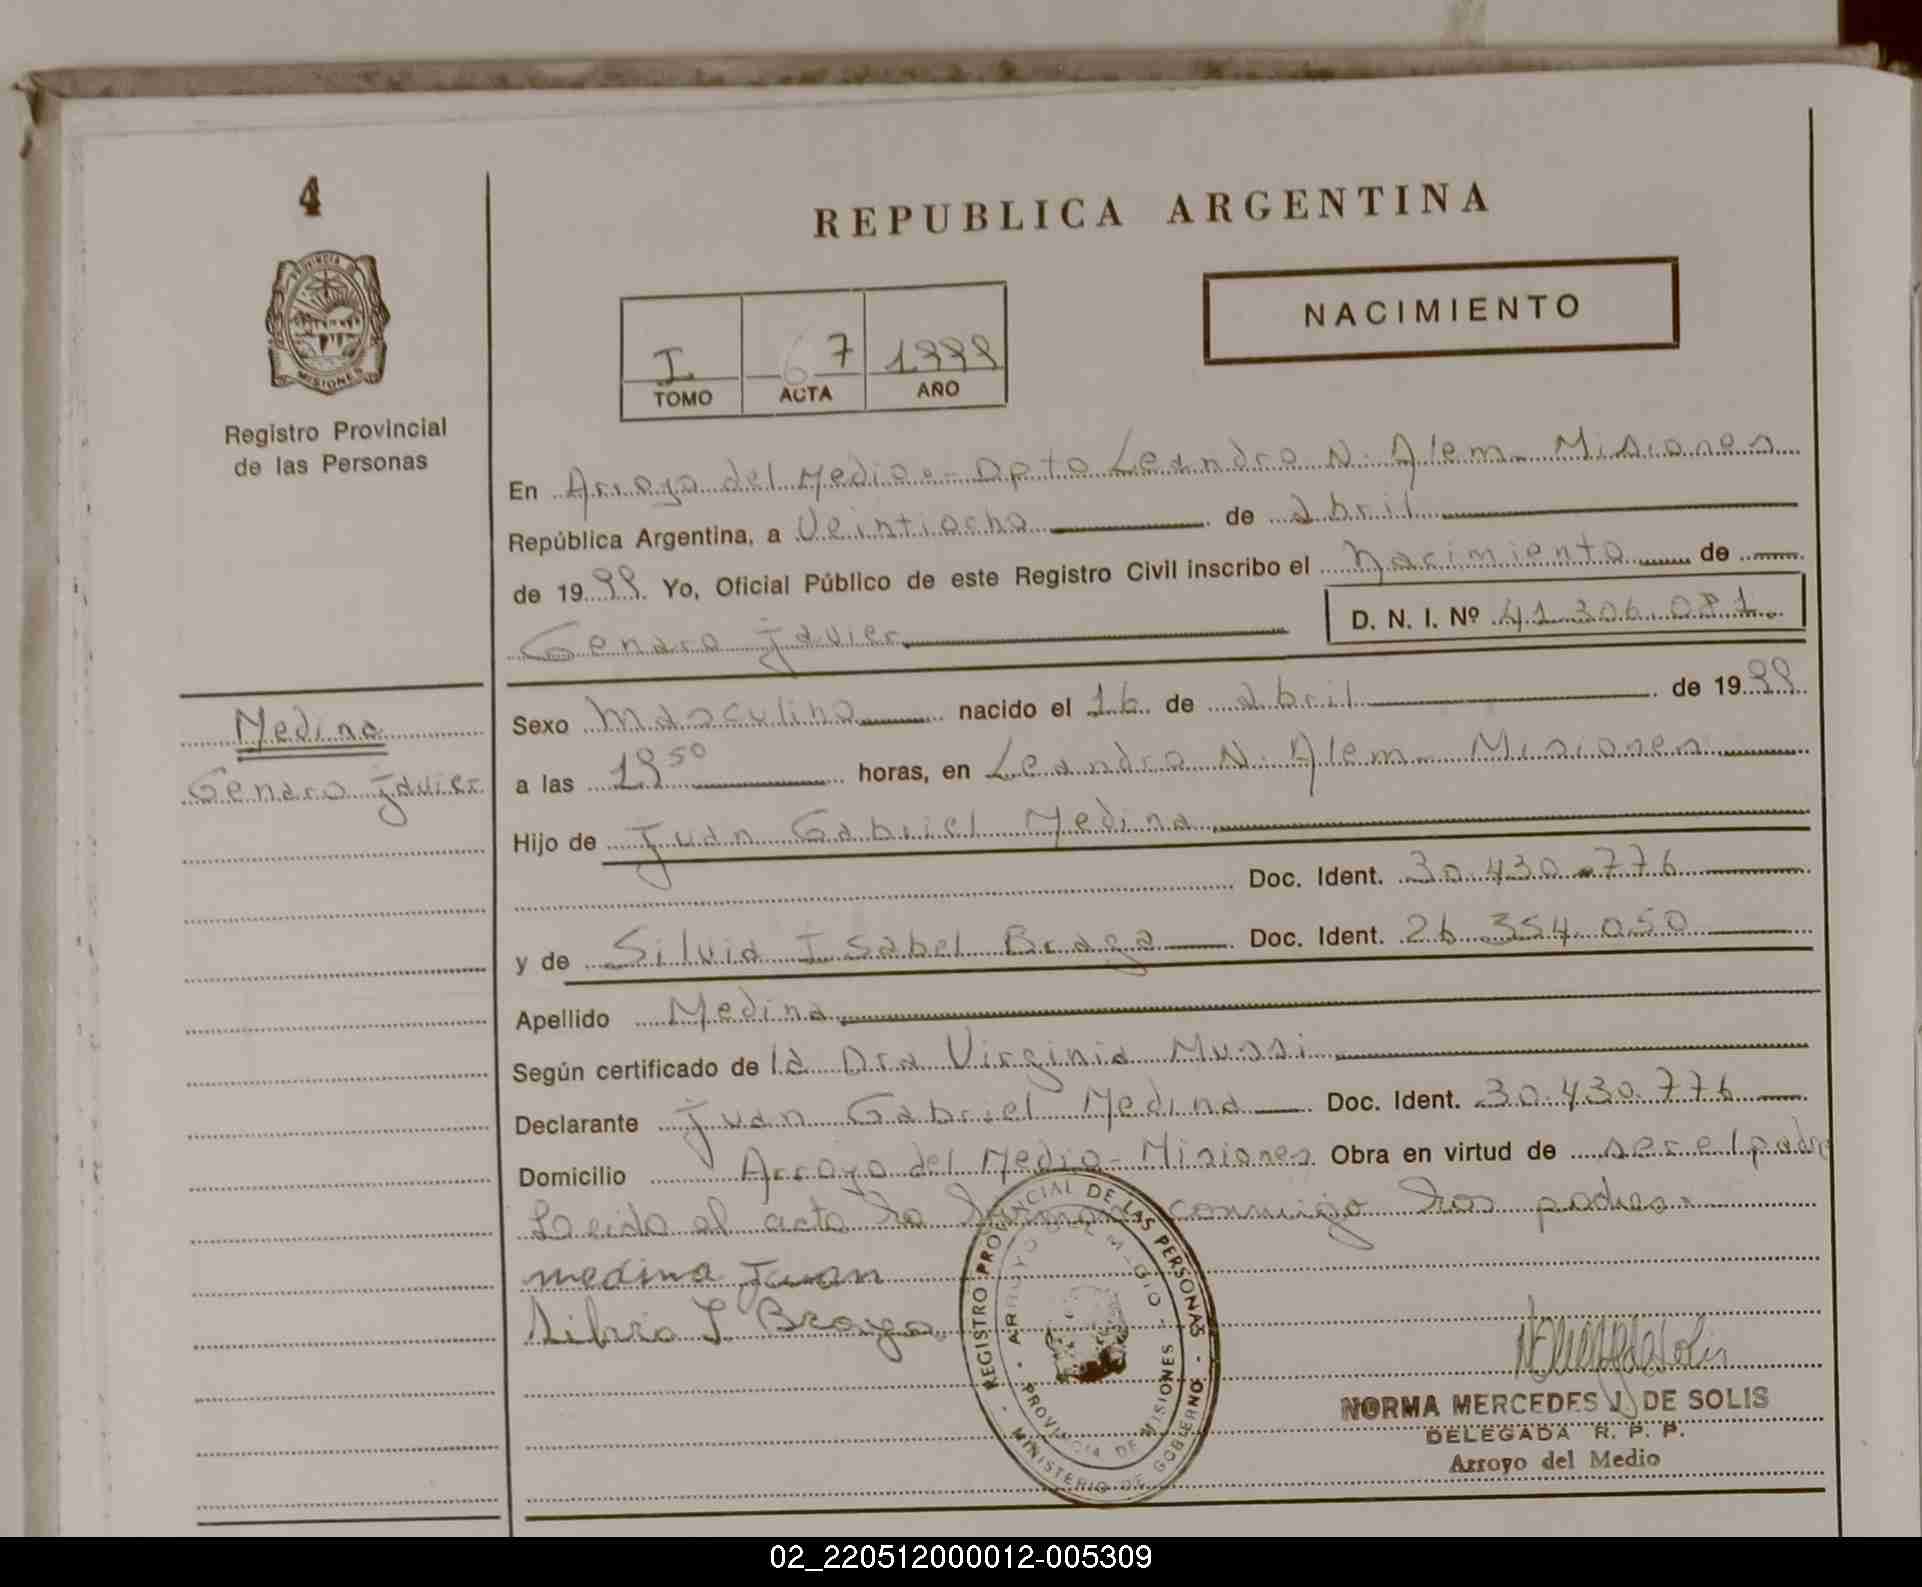 4
REPUBLICA ARGENTINA
NACIMIENTO
PROVINCIA DE
MISIONES
Registro Provincial
de las Personas
I 67 1999
TOMO ACTA AÑO
En Arroyo del Medio - Dpto Leandro N. Alem - Misiones
República Argentina, a Veintiocho de abril
de 1999. Yo, Oficial Público de este Registro Civil inscribo el Nacimiento de
Genaro Javier D. N. I. Nº 41.306.081
Medina
Genaro Javier
Sexo Masculino nacido el 16 de abril de 1999
a las 19 50 horas, en Leandro N. Alem - Misiones
Hijo de Juan Gabriel Medina
Doc. Ident. 30.430.776
y de Silvia Isabel Braga Doc. Ident. 26.354.050
Apellido Medina
Según certificado de la Dra Virginia Mussi
Declarante Juan Gabriel Medina Doc. Ident. 30.430.776
Domicilio Arroyo del Medio - Misiones Obra en virtud de ser el padre
Leida el acta la firman conmigo los padres
medina Juan
Silvia I Braga
REGISTRO PROVINCIAL DE LAS PERSONAS - MINISTERIO DE GOBIERNO -
ARROYO DEL MEDIO - PROVINCIA DE MISIONES
NORMA MERCEDES J. DE SOLIS
DELEGADA R. P. P.
Arroyo del Medio
02_220512000012-005309